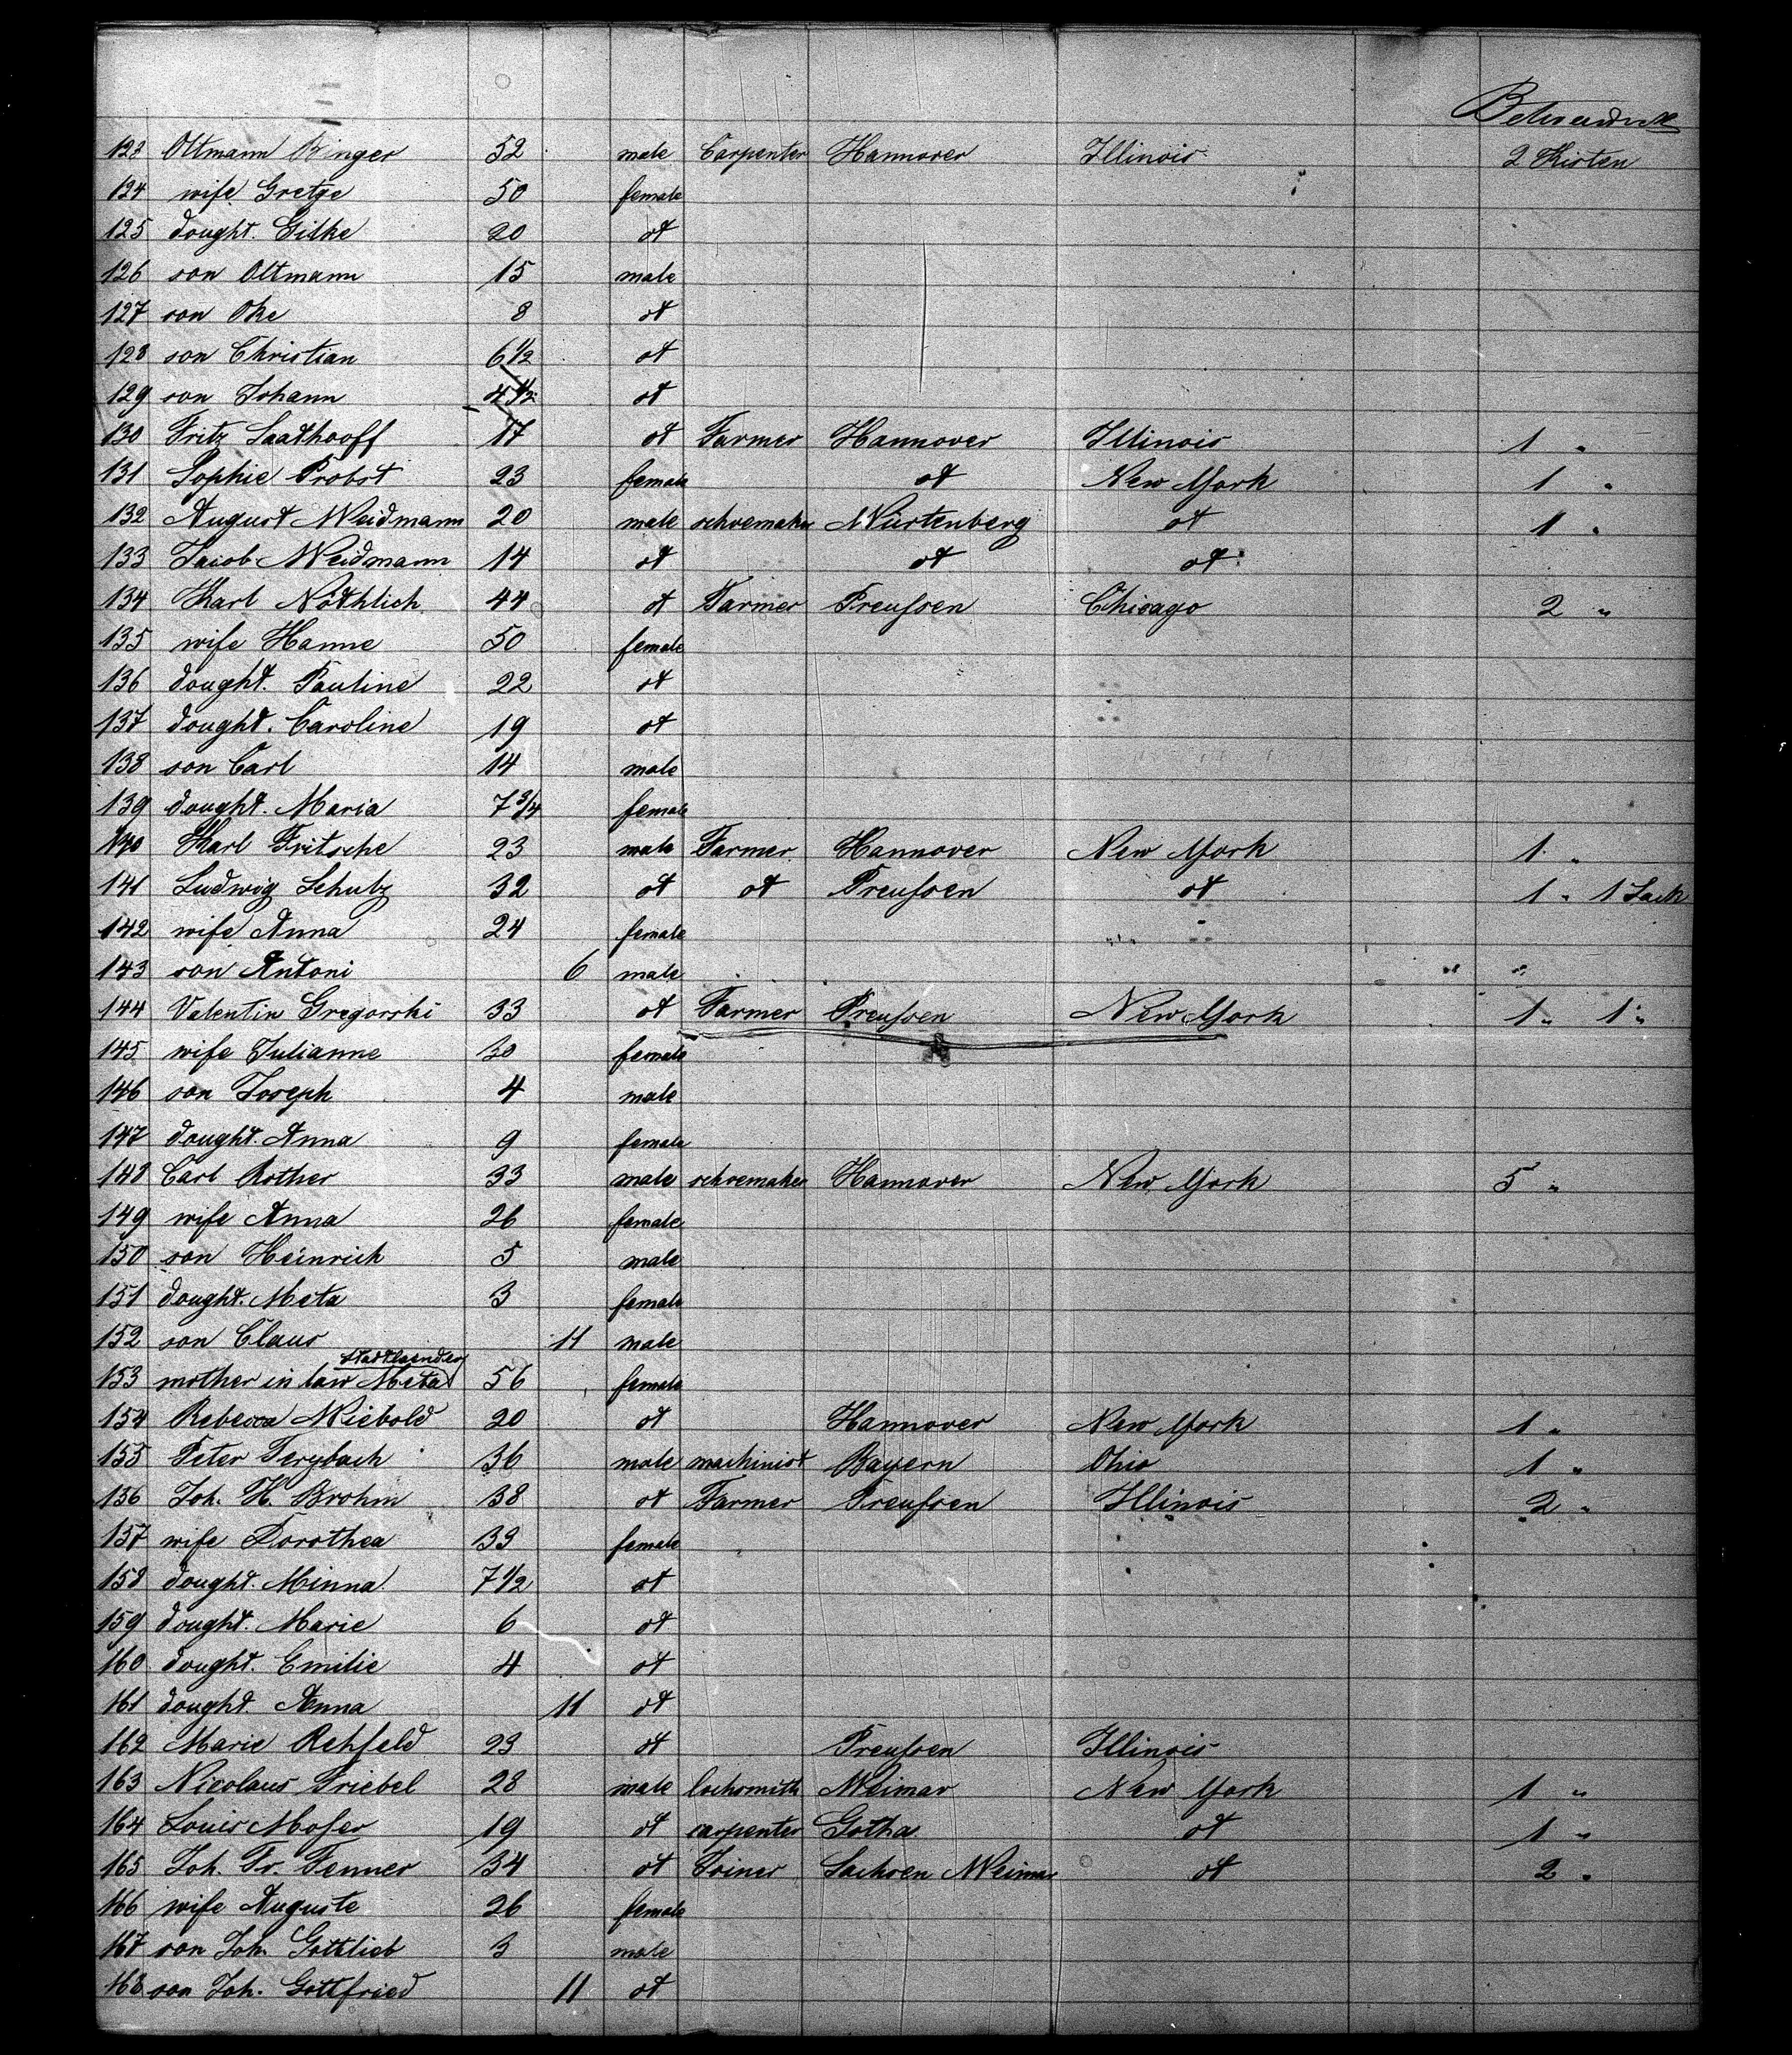 123 Oltmann Ringer 52 male Carpenter Hannover Illinois 2 Kisten
124 wife Gretje 50 female
125 dought. Gilke 20 ot
126 son Oltmann 15 male
127 son Oke 8 ot
128 son Christian 6 1/2 ot
129 son Johann 4 1/2 ot
130 Fritz Saathooff 17 ot Farmer Hannover Illinois 1 "
131 Sophie Probst 23 female ot New York 1 "
132 August Weidmann 20 male schoemaker Würtenberg ot 1 "
133 Jacob Weidmann 14 ot ot ot
134 Karl Nöthlich 44 ot Farmer Preußen Chicago 2 "
135 wife Hanne 50 female
136 dought. Pauline 22 ot
137 dought. Caroline 19 ot
138 son Carl 14 male
139 dought. Maria 7 3/4 female
140 Karl Fritsche 23 male Farmer Hannover New York 1 "
141 Ludwig Schulz 32 ot ot Preußen ot 1 " 1 Sack
142 wife Anna 24 female
143 son Antoni 6 male
144 Valentin Gregorski 33 ot Farmer Preußen New York 1 " 1 "
145 wife Julianne 30 female
146 son Joseph 4 male
147 dought. Anna 9 female
148 Carl Rother 33 male schoemaker Hannover New York 5 "
149 wife Anna 26 female
150 son Heinrich 5 male
151 dought. Meta 3 female
152 son Claus 11 male
Stadtlaender
153 mother in law Meta 56 female
154 Rebecca Wiebold 20 ot Hannover New York 1 "
155 Peter 36 male machinist Bayern Ohio 1 "
156 Joh. H. Brohm 38 ot Farmer Preußen Illinois 2 "
157 wife Dorothea 33 female
158 dought. Minna 7 1/2 ot
159 dought. Marie 6 ot
160 dought. Emilie 4 ot
161 dought. Anna 11 ot
162 Marie Rehfeld 23 ot Preußen Illinois
163 Nicolaus Triebel 28 male locksmith Weimar New York 1 "
164 Louis Moßer 19 ot carpenter Gotha ot 1 "
165 Joh. Fr. Fenner 34 ot Joiner Sachsen Weimar ot 2 "
166 wife Auguste 26 female
167 son Joh. Gottlieb 3 male
168 son Joh. Gottfried 11 ot